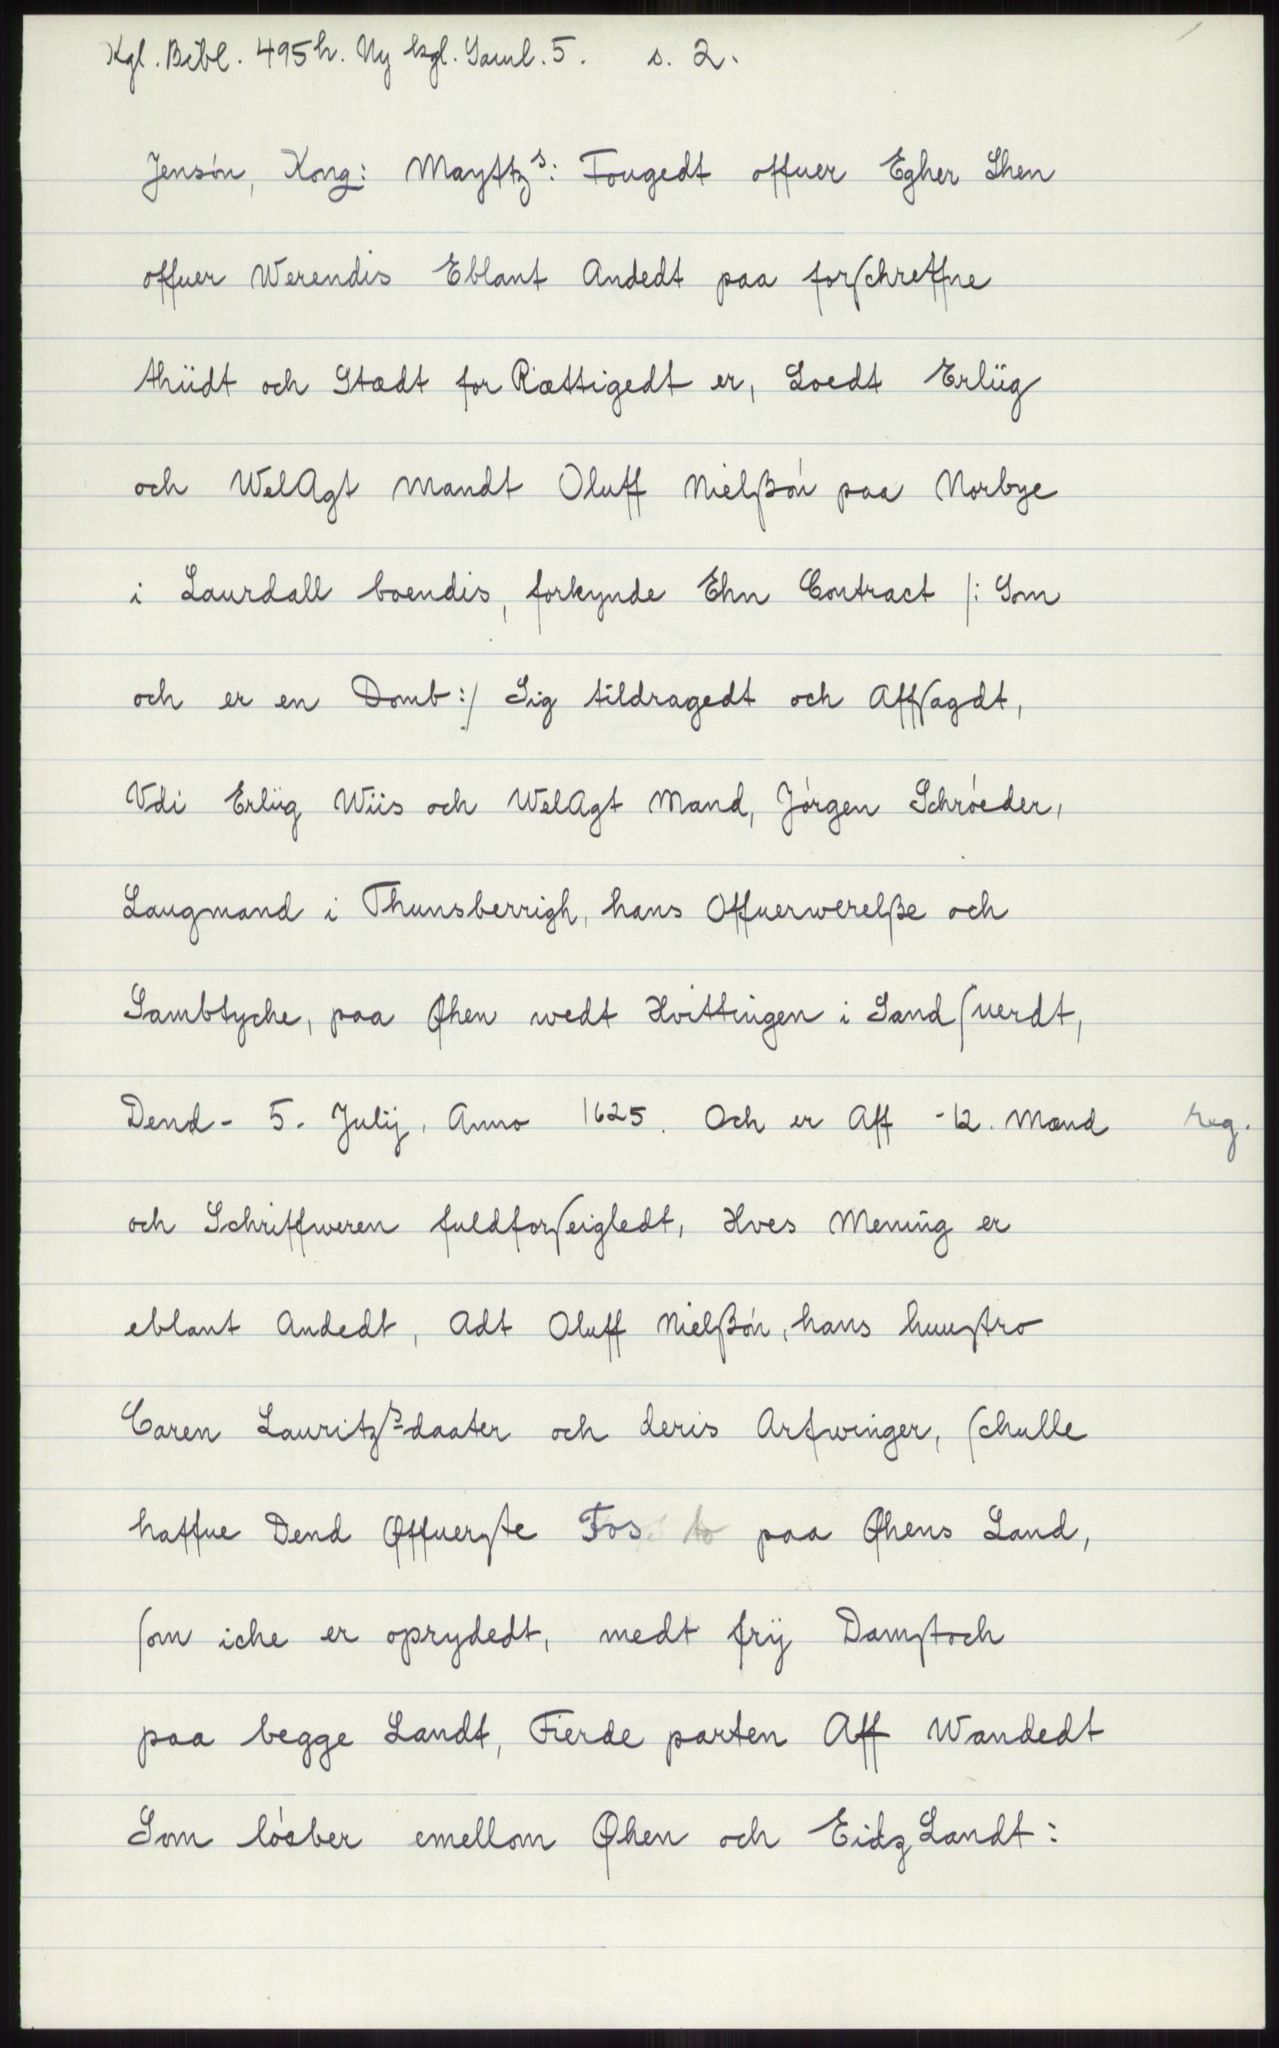 Kgl. Bibl. 495 h. Ny kgl. Saml. 5. s. 2.
Jensón, Kong: Mayſtzˢ: Fougedt offuer Egher Lhen
offuer Werendis Eblant Andedt paa forſchreffne
thüdt och Stædt for Rættigedt er, Loedt Erlüg
och WelAgt mandt Oluff Nielßón paa Norbye
i Laurdall boendis, forkynde Ehn Contract /: Som
och er en Domb :/ Sig tildragedt och Affſagdt,
Vdi Erlüg Wiis och WelAgt Mand, Jórgen Schróeder,
Laugmand i Thunsberrigh, hans Offuerwerelße och
Sambtyche, paa Øhen wedt Hvittingen i Sandſuerdt,
Dend - 5. Julij, Anno 1625. Och er Aff - 12. Mænd reg.
och Schriffweren fuldforſeigledt, Hves Mening er
eblant Andedt, Adt Oluff Nielßón, hans huuſtro
Caren Lauritzß-daater och deris Arfwinger, ſchulle
haffue Dend Øffuerſte Fos paa Øhens Land,
ſom iche er oprydedt, medt frÿ Damſtoch
paa begge Landt, Fierde parten Aff Wandedt
Som lóeber emellom Øhen och Eidz Landt: